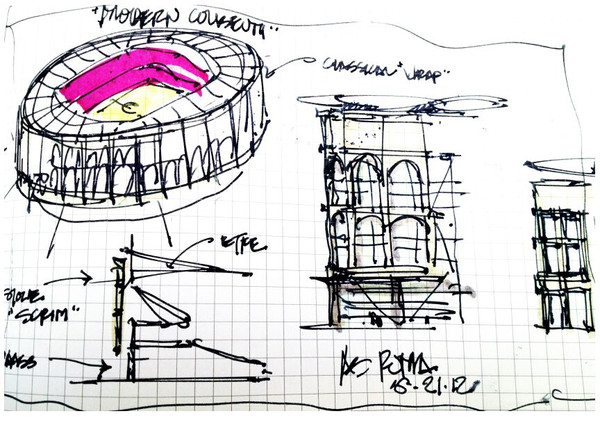 "MODERN COLISEUM"
CLASSICAL "WRAP"
ETFE
"SCRIM"
AS ROMA
5·21·12